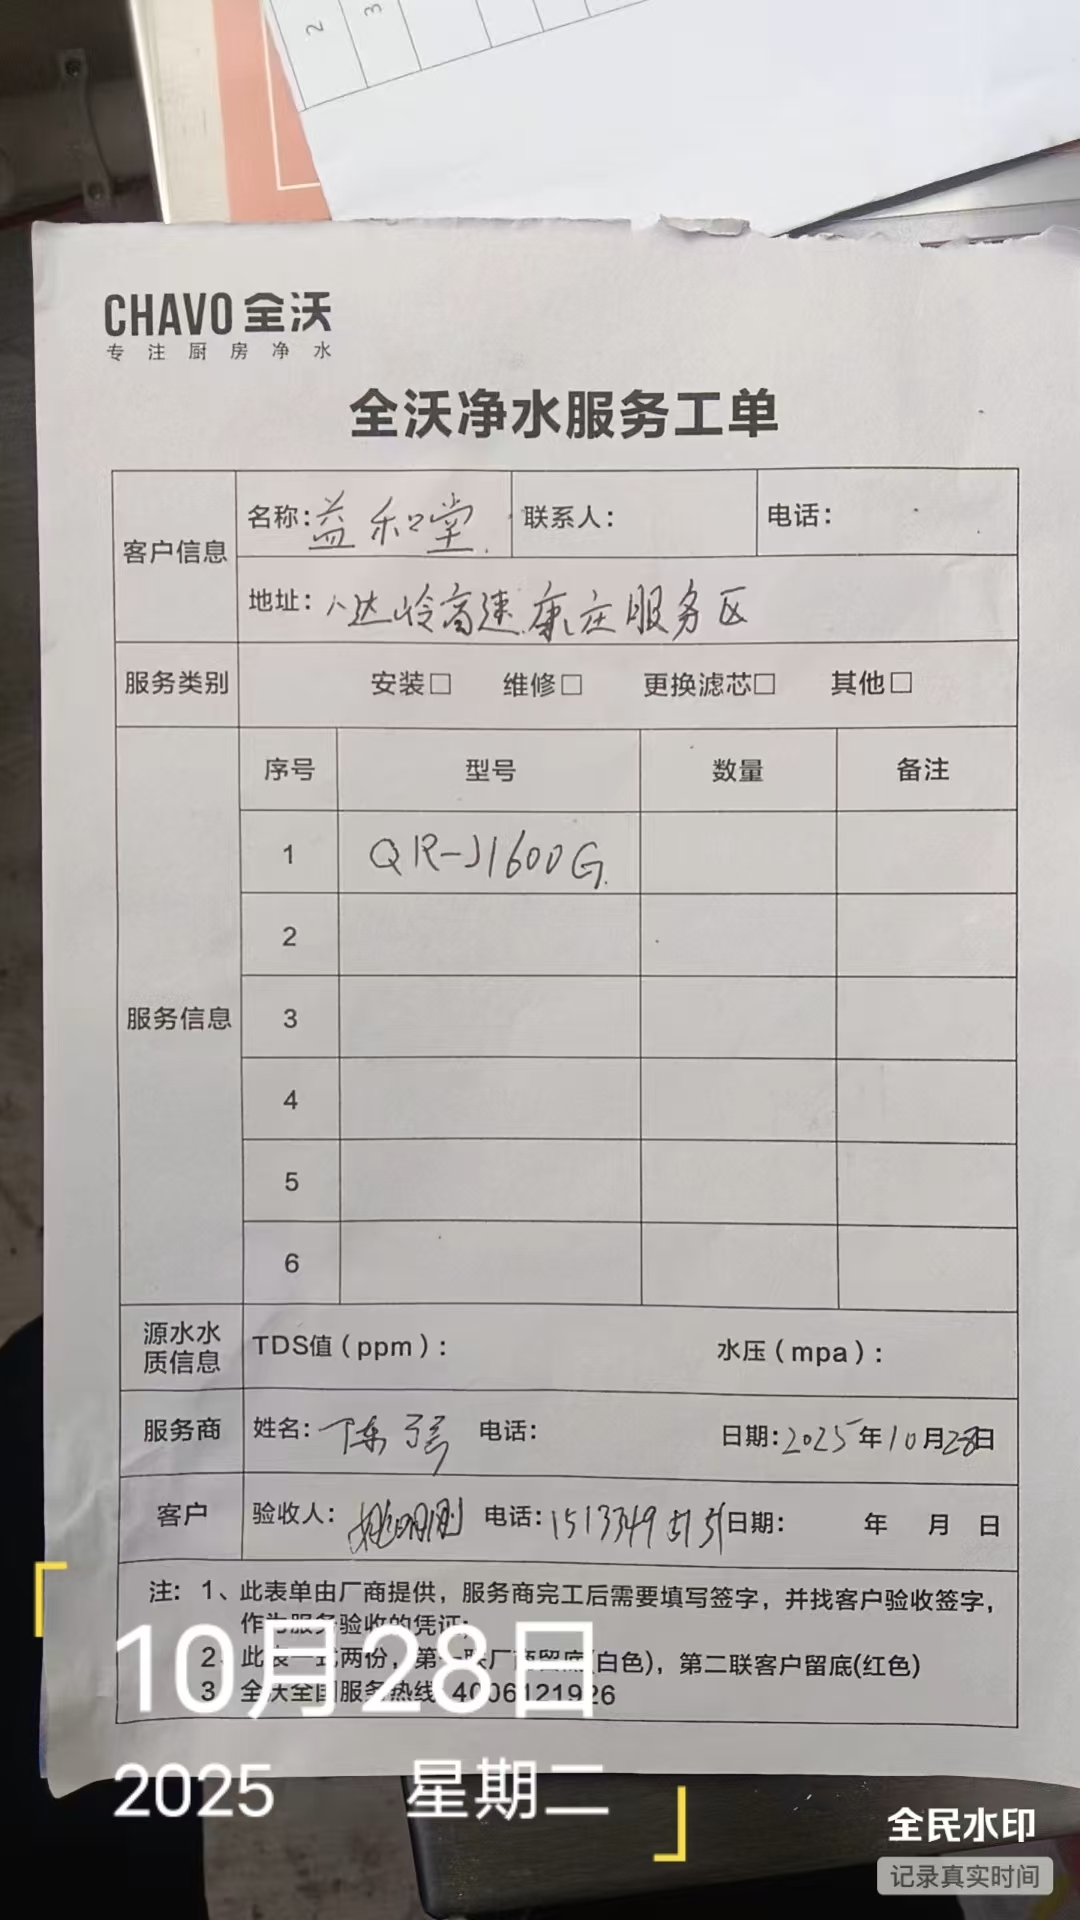 2 3
CHAVO 全沃
专注厨房净水
全沃净水服务工单
客户信息 名称:益和堂 联系人: 电话:
地址:八达岭高速康庄服务区
服务类别 安装□ 维修□ 更换滤芯□ 其他□
序号 型号 数量 备注
1 QR-J1600G
2
服务信息 3
4
5
6
源水水质信息 TDS值(ppm): 水压(mpa):
服务商 姓名:陈强 电话: 日期:2025年10月28日
客户 验收人: 电话:1513349 日期: 年 月 日
注:1、此表单由厂商提供,服务商完工后需要填写签字,并找客户验收签字,
作为服务验收的凭证;
2、此表一式两份,第一联厂商留底(白色),第二联客户留底(红色)
3、全沃全国服务热线:4006121926
10月28日
2025 星期二
全民水印
记录真实时间